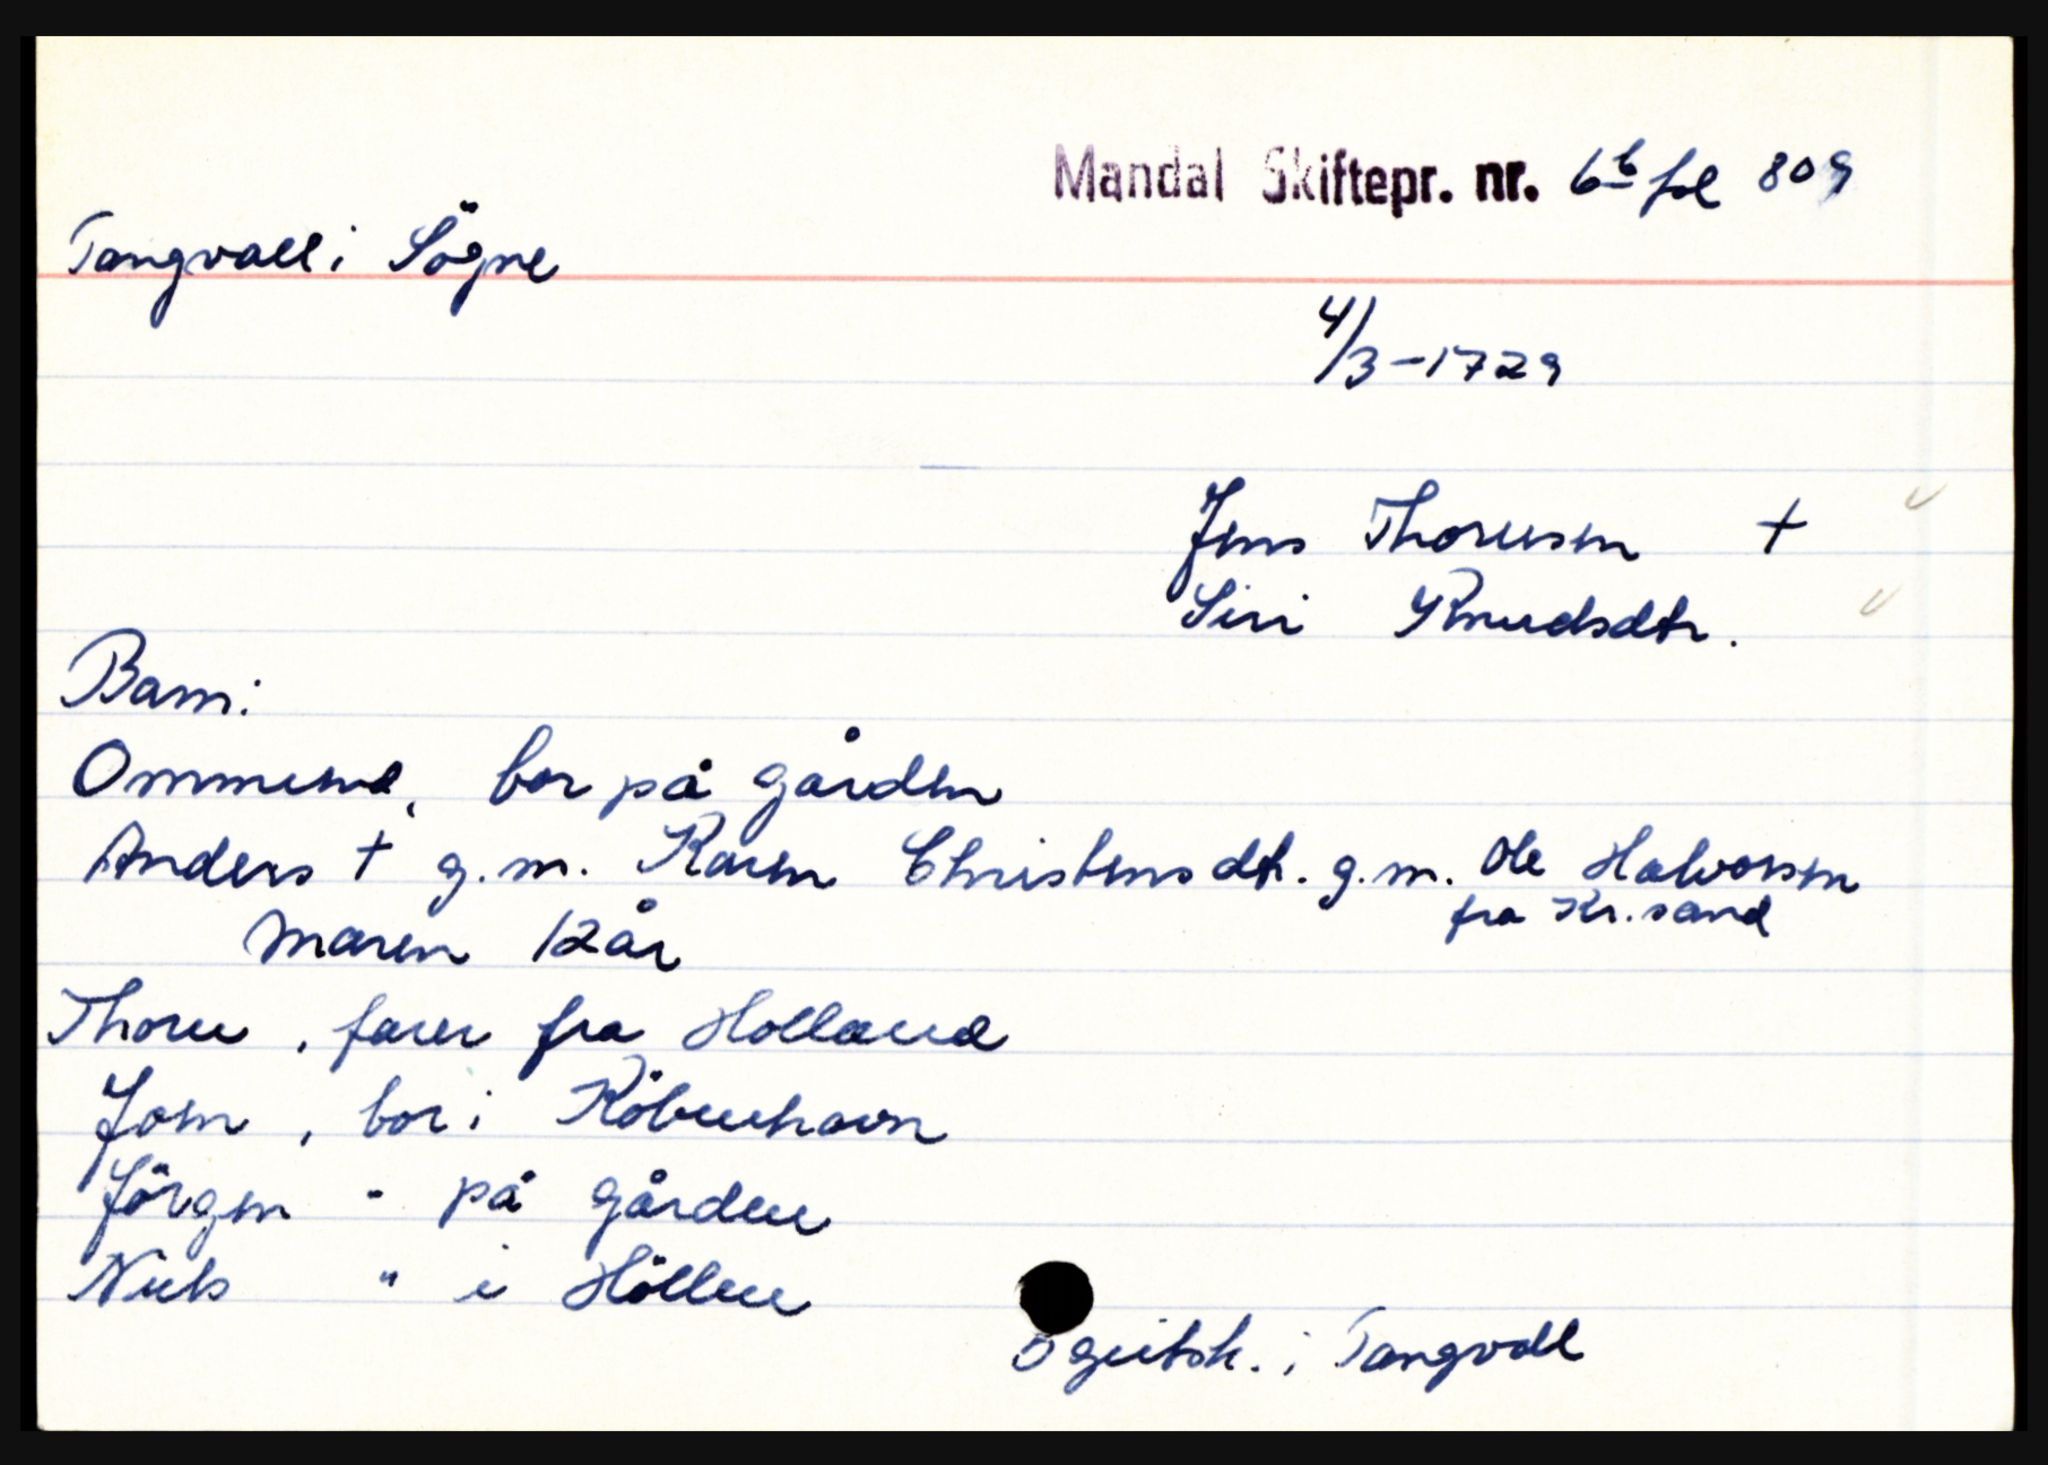 Mandal Skiftepr. nr. 6b fol 809
Tangvall i Sögne
4/3-1729
Jens Thoresen +
Siri Knudsdtr.
Barn:
Ommund, bor på gården
Anders + g.m. Karen Christensdtr. g.m. Ole Halvorsen
fra Kr.sand
Maren 12 år
Thore, farer fra Holland
Jom, bor i Köbenhavn
Jörgen " på gården
Niels " i Höllen
5 geitsk. i Tangvall